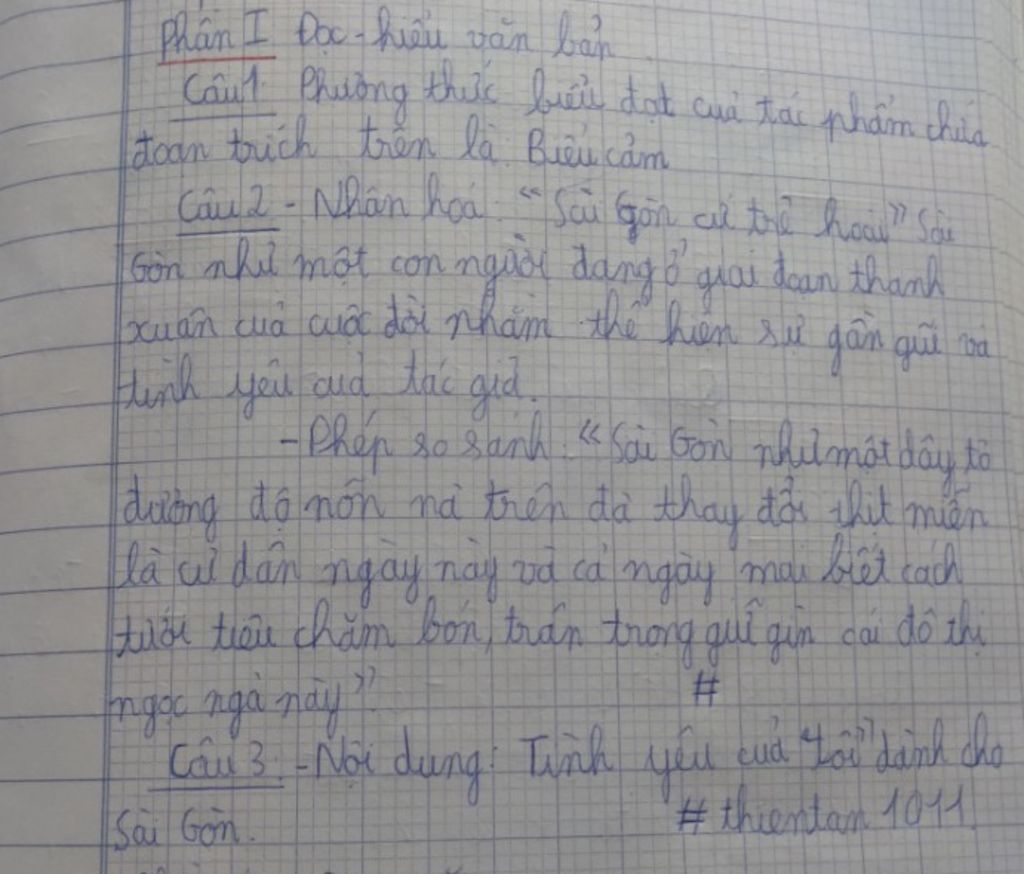 Phần I Đọc - hiểu văn bản.
Câu 1: Phương thức biểu đạt của tác phẩm chứa
đoạn trích trên là: Biểu cảm
Câu 2 - Nhân hoá: "Sài Gòn cứ trẻ hoài" Sài
Gòn như một con người đang ở giai đoạn thanh
xuân của cuộc đời nhằm thể hiện sự gần gũi và
tình yêu của tác giả.
- Phép so sánh: "Sài Gòn như một cây tơ
đương độ nõn nà trên đà thay đổi thịt miễn
là cư dân ngày này và cả ngày mai biết cách
tưới tiêu chăm bón, trân trọng giữ gìn cái đô thị
ngọc ngà này" #
Câu 3: - Nội dung: Tình yêu của "tôi" dành cho
Sài Gòn. # thientan 1011